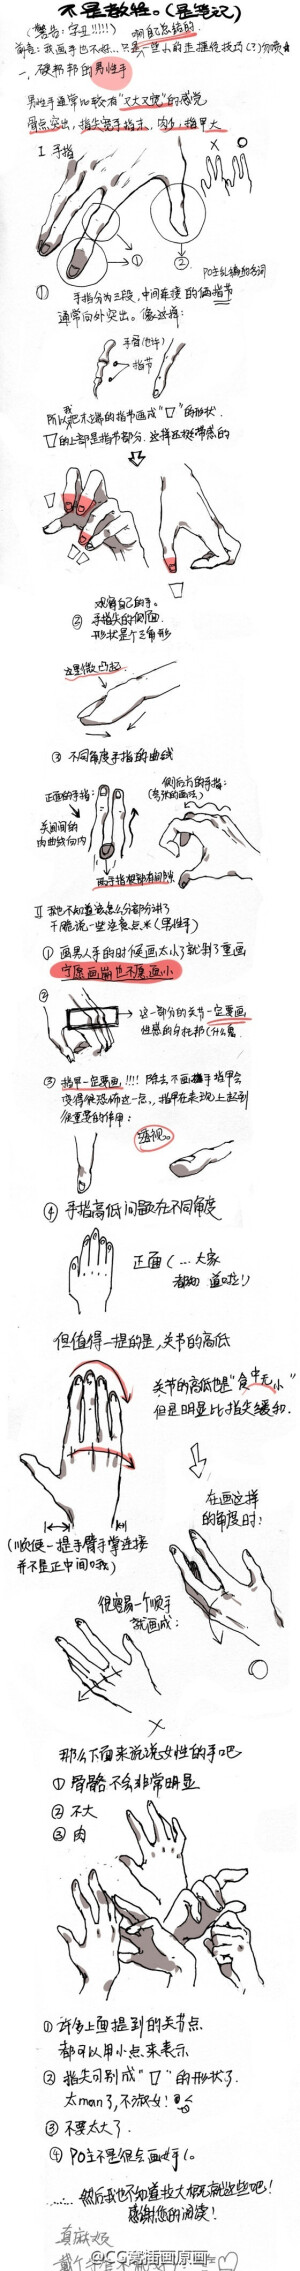 不是教程。(是笔记)
(警告：字丑!!!!!)
啊自己总结的.
前言：我画手也不好.. 只是一些小的走捷径技巧(?)分享
一、硬邦邦的男性手
男性手通常比较有"又大又宽"的感觉
骨点突出，指尖宽手指末，肉少，指甲大
I 手指
X O
① ②
PO主乱编的名词
① 手指分为三段，中间连接的俩指节
通常向外突出。像这样：
手骨(也许)
指节
所以我把末端的指节画成"▽"的形状.
▽的上部是指节部分. 这样还挺带感的
观察自己的手。
② 手指尖的侧面
形状是个三角形
这里微凸起.
③ 不同角度手指的曲线
正面的手指：
关节间的
肉曲线向内
侧后方的手指：
(夸张的画法)
两手指根部有间隙
II 我也不知道该怎么分部分讲了
干脆说一些注意点米(男性手)
① 画男人手的时候画太小了就剁了重画
宁愿画崩也不愿画小
②
这一部分的关节一定要画
性感的分花拂(什么鬼
③ 指甲一定要画!!!! 除去不画手指甲会
变得很恐怖这一点，指甲在表现上起到
很重要的作用：
透视。
④ 手指高低问题在不同角度
正面(…大家
都知道啦!)
但值得一提的是，关节的高低
关节的高低也是"食中无小"
但是明显比指尖缓和.
(顺便一提手臂手掌连接
并不是正中间哦)
在画这样
的角度时：
很容易一个顺手
就画成：
O
X
那么下面来说说女性的手吧
① 骨骼不会非常明显
② 不大
③ 肉
① 许多上面提到的关节点
都可以用小点来表示
② 指尖可别成"▽"的形状了.
太man了，不淑女!
③ 不要太大了.
④ PO主不是很会画女手
…… 然后我也不知道 拉 大概就这些吧!
感谢您的阅读!
真麻姬
@CG窝插画原画